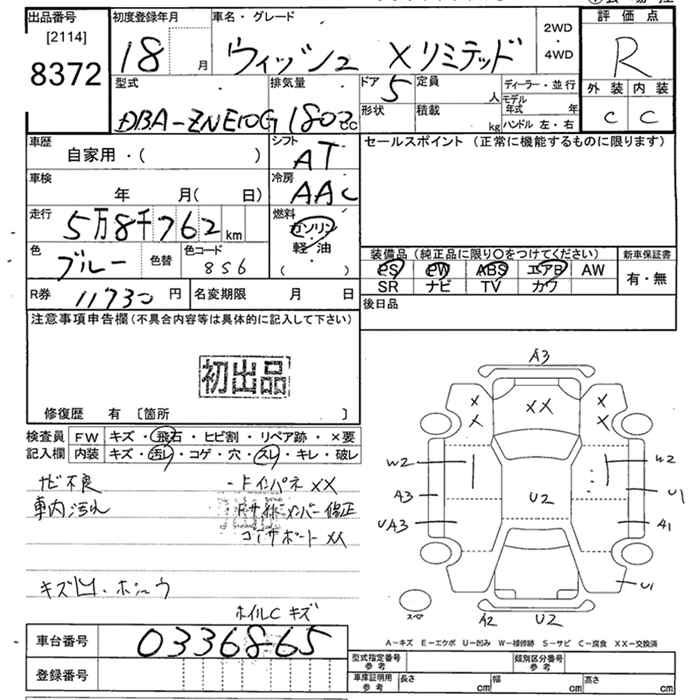 出品番号 初度登録年月 車名・グレード 2WD ・ 4WD 評価点
[2114]
8372 18 月 ウィッシュ Xリミテッド R
型式 排気量 ドア 5 定員 人 ディーラー・並行 外装 内装
形状 積載 kg モデル年式 年
DBA-ZNE10G 1800cc ハンドル 左・右 C C
車歴 シフト セールスポイント (正常に機能するものに限ります)
自家用・( ) AT
車検 冷房
年 月( 日) AAC
走行 燃料
5万8千762km ガソリン
軽・油
( )
色 ブルー 色替 色コード 8S6
装備品 (純正品に限り○をつけてください) 新車保証書
PS PW ABS エアB AW 有・無
SR ナビ TV カワ
R券 11730円 名変期限 月 日 後日品
注意事項申告欄(不具合内容等は具体的に記入して下さい)
初出品
修復歴 有 [箇所 ]
検査員 FW キズ・飛石・ヒビ割・リペア跡・×要
記入欄 内装 キズ・汚レ・コゲ・穴・スレ・キレ・破レ
ナビ不良
車内汚れ
インパネ XX
サイドメンバー 修正
コアサポート XX
キズ凹・ホシュウ
ホイルC キズ
車台番号 0336865
登録番号
A3
XX
X X
X X
W2 W2
A3 U2 U1
UA3 A1
U1
スペア
A2 U2
A-キズ E-エクボ U-凹み W-補修跡 S-サビ C-腐食 XX-交換済
型式指定番号 参考 類別区分番号 参考
車庫証明用 参考 長さ cm 幅 cm 高さ cm